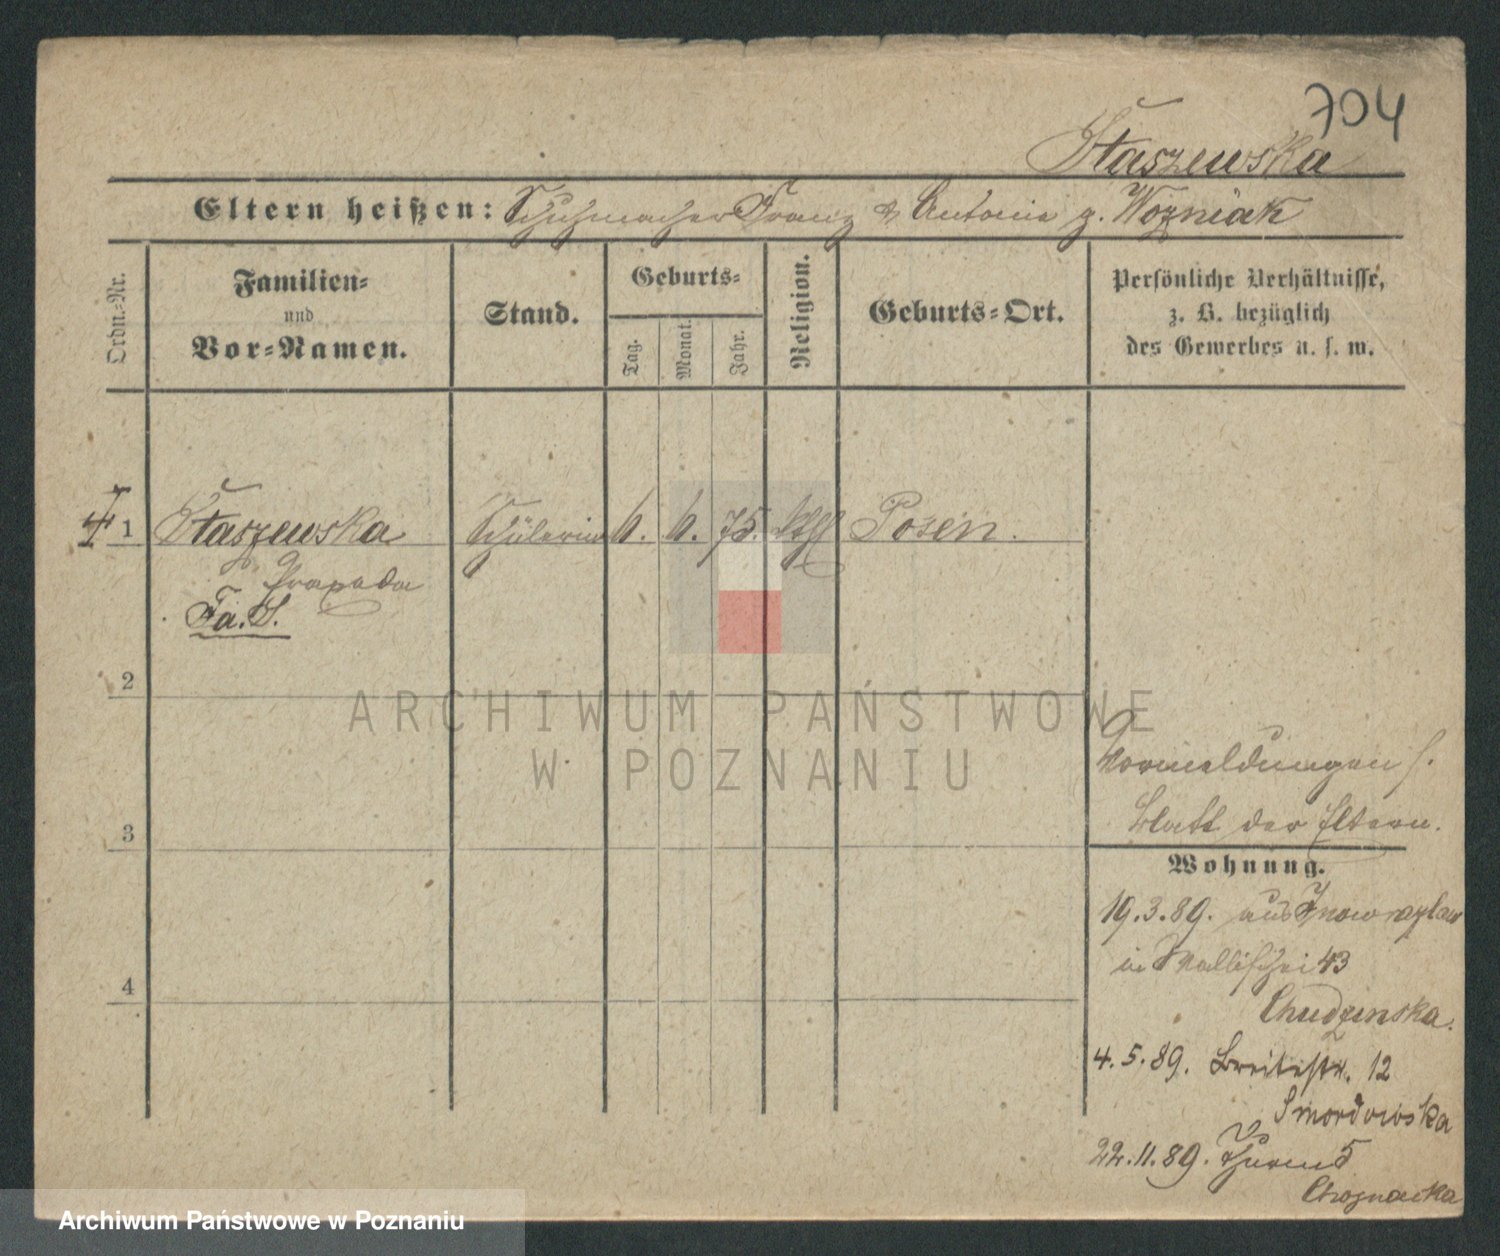 704
Staszewska
Eltern heißen: Schuhmacher Franz & Antonie g. Wozniak
Ordn.-Nr.
Familien-
und
Vor-Namen.
Stand.
Geburts-
Tag.
Monat.
Jahr.
Religion.
Geburts-Ort.
Persönliche Verhältnisse,
z. B. bezüglich
des Gewerbes u. s. w.
1 Staszewska Schülerin 6. 6. 75. kth Posen.
Praxeda
Fa. S.
2
ARCHIWUM PAŃSTWOWE
W POZNANIU
Vormeldungen s.
Blatt der Eltern.
3
Wohnung.
19.3.89. aus Inowrazlaw
in Wallischei 43
Chudzinska.
4
4.5.89. Breitestr. 12
Smordowska
22.11.89. Thurm 5
Choynacka
Archiwum Państwowe w Poznaniu